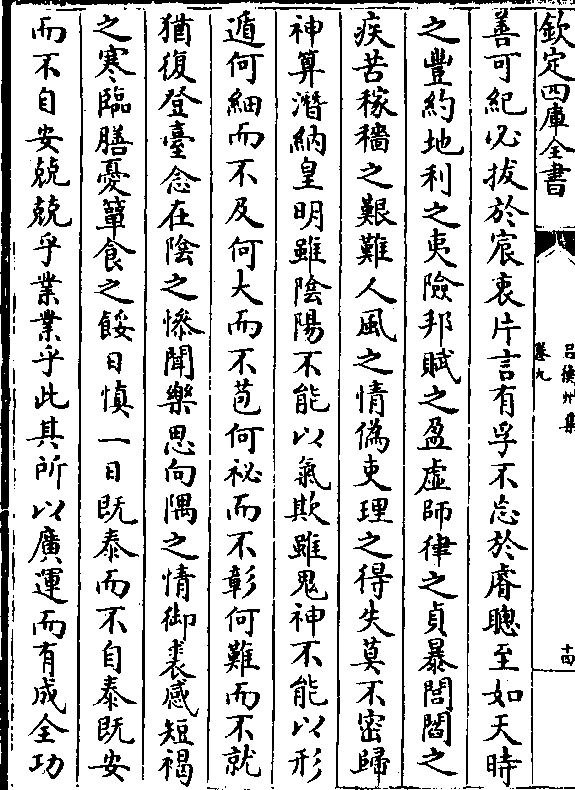 欽定四庫全書
呂衡州集
卷九
十四
善可紀必拔於宸衷片言有孚不忘於睿聰至如天時
之豐約地利之夷險邦賦之盈虛師律之貞暴閭閻之
疾苦稼穡之艱難人風之情偽吏理之得失莫不密歸
神算潛納皇明雖陰陽不能以氣欺雖鬼神不能以形
遁何細而不及何大而不苞何祕而不彰何難而不就
猶復登臺念在陰之慘聞樂思向隅之情御裘感短褐
之寒臨膳憂簞食之餒日慎一日既泰而不自泰既安
而不自安兢兢乎業業乎此其所以廣運而有成全功